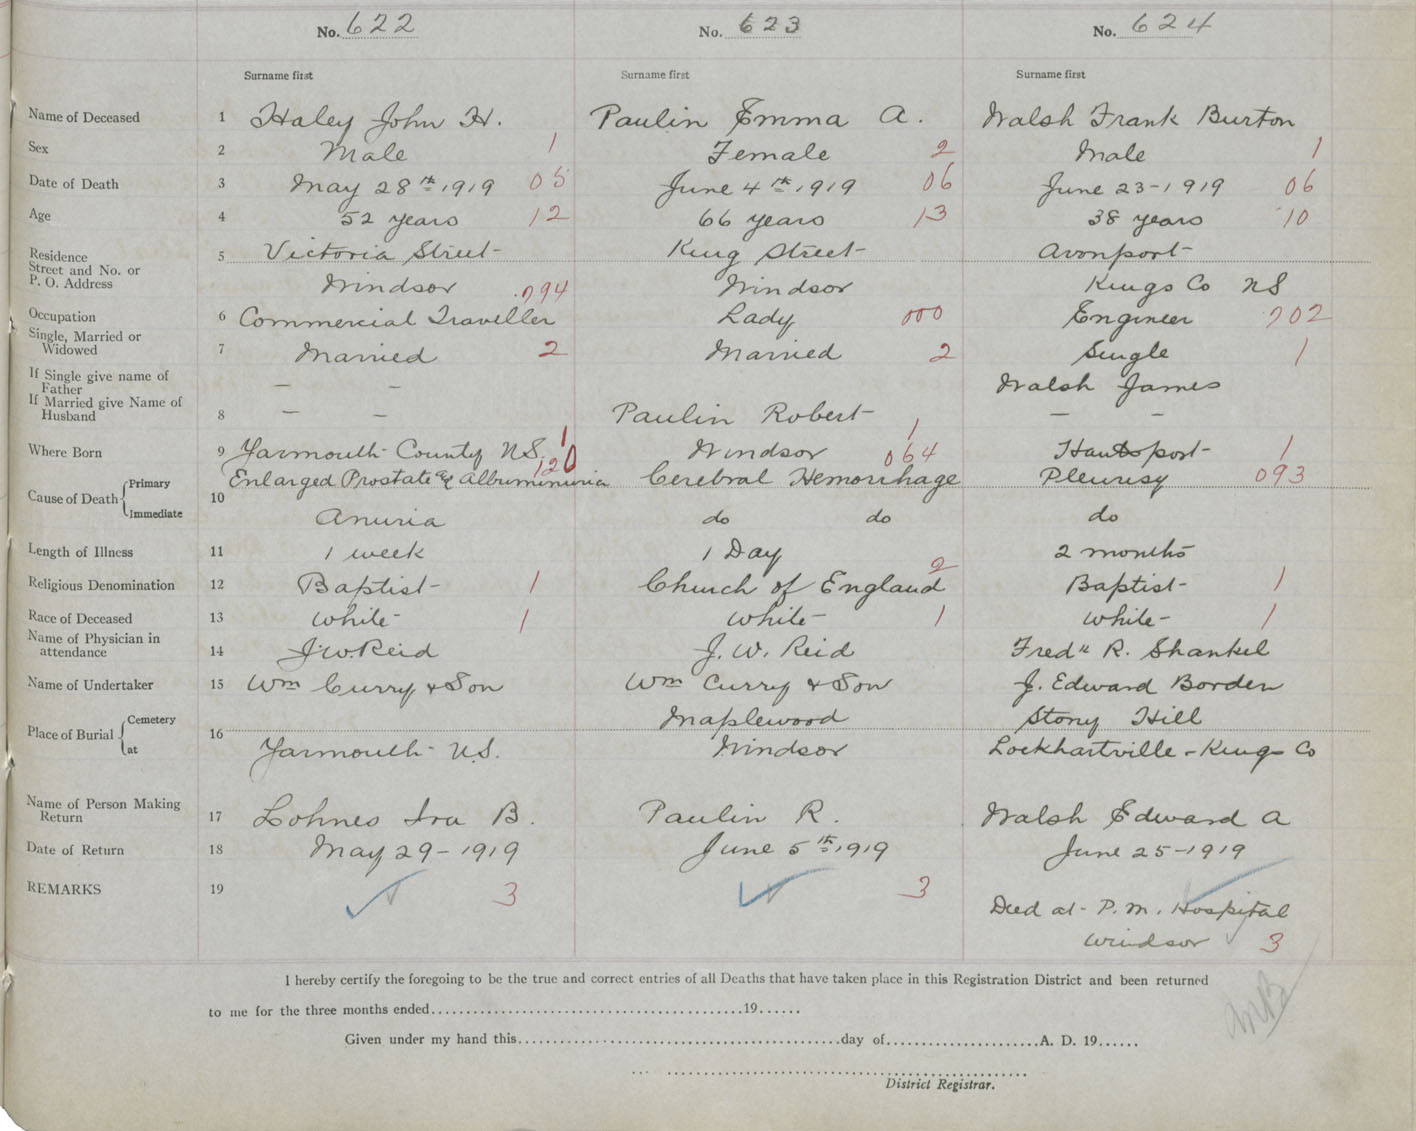 No. 622 No. 623 No. 624
Surname first Surname first Surname first
Name of Deceased 1 Haley John H. Paulin Emma A. Walsh Frank Burton
Sex 2 Male 1 Female 2 Male 1
Date of Death 3 May 28th 1919 05 June 4th 1919 06 June 23-1919 06
Age 4 52 years 12 66 years 13 38 years 10
Residence 5 Victoria Street King Street Avonport
Street and No. or
P. O. Address Windsor 794 Windsor Kings Co NS
Occupation 6 Commercial Traveller Lady 000 Engineer 702
Single, Married or
Widowed 7 Married 2 Married 2 Single 1
If Single give name of
Father – – Walsh James
If Married give Name of
Husband 8 – – Paulin Robert – –
Where Born 9 Yarmouth County NS. 1 Windsor 1 Hantsport 1
Cause of Death Primary 10 Enlarged Prostate & Albumminuria 120 Cerebral Hemorrhage 064 Pleurisy 093
Immediate Anuria do do do
Length of Illness 11 1 week 1 Day 2 months
Religious Denomination 12 Baptist 1 Church of England 2 Baptist 1
Race of Deceased 13 White 1 White 1 White 1
Name of Physician in
attendance 14 J.W. Reid J. W. Reid Fredk R. Shankel
Name of Undertaker 15 Wm Curry & Son Wm Curry & Son J. Edward Borden
Place of Burial Cemetery 16 Maplewood Stony Hill
at Yarmouth N.S. Windsor Lockhartville - Kings Co
Name of Person Making
Return 17 Lohnes Ira B. Paulin R. Walsh Edward A
Date of Return 18 May 29-1919 June 5th 1919 June 25-1919
REMARKS 19 3 3 Died at P.M. Hospital
Windsor 3
I hereby certify the foregoing to be the true and correct entries of all Deaths that have taken place in this Registration District and been returned
to me for the three months ended..........19......
Given under my hand this..........day of..........A. D. 19......
District Registrar.